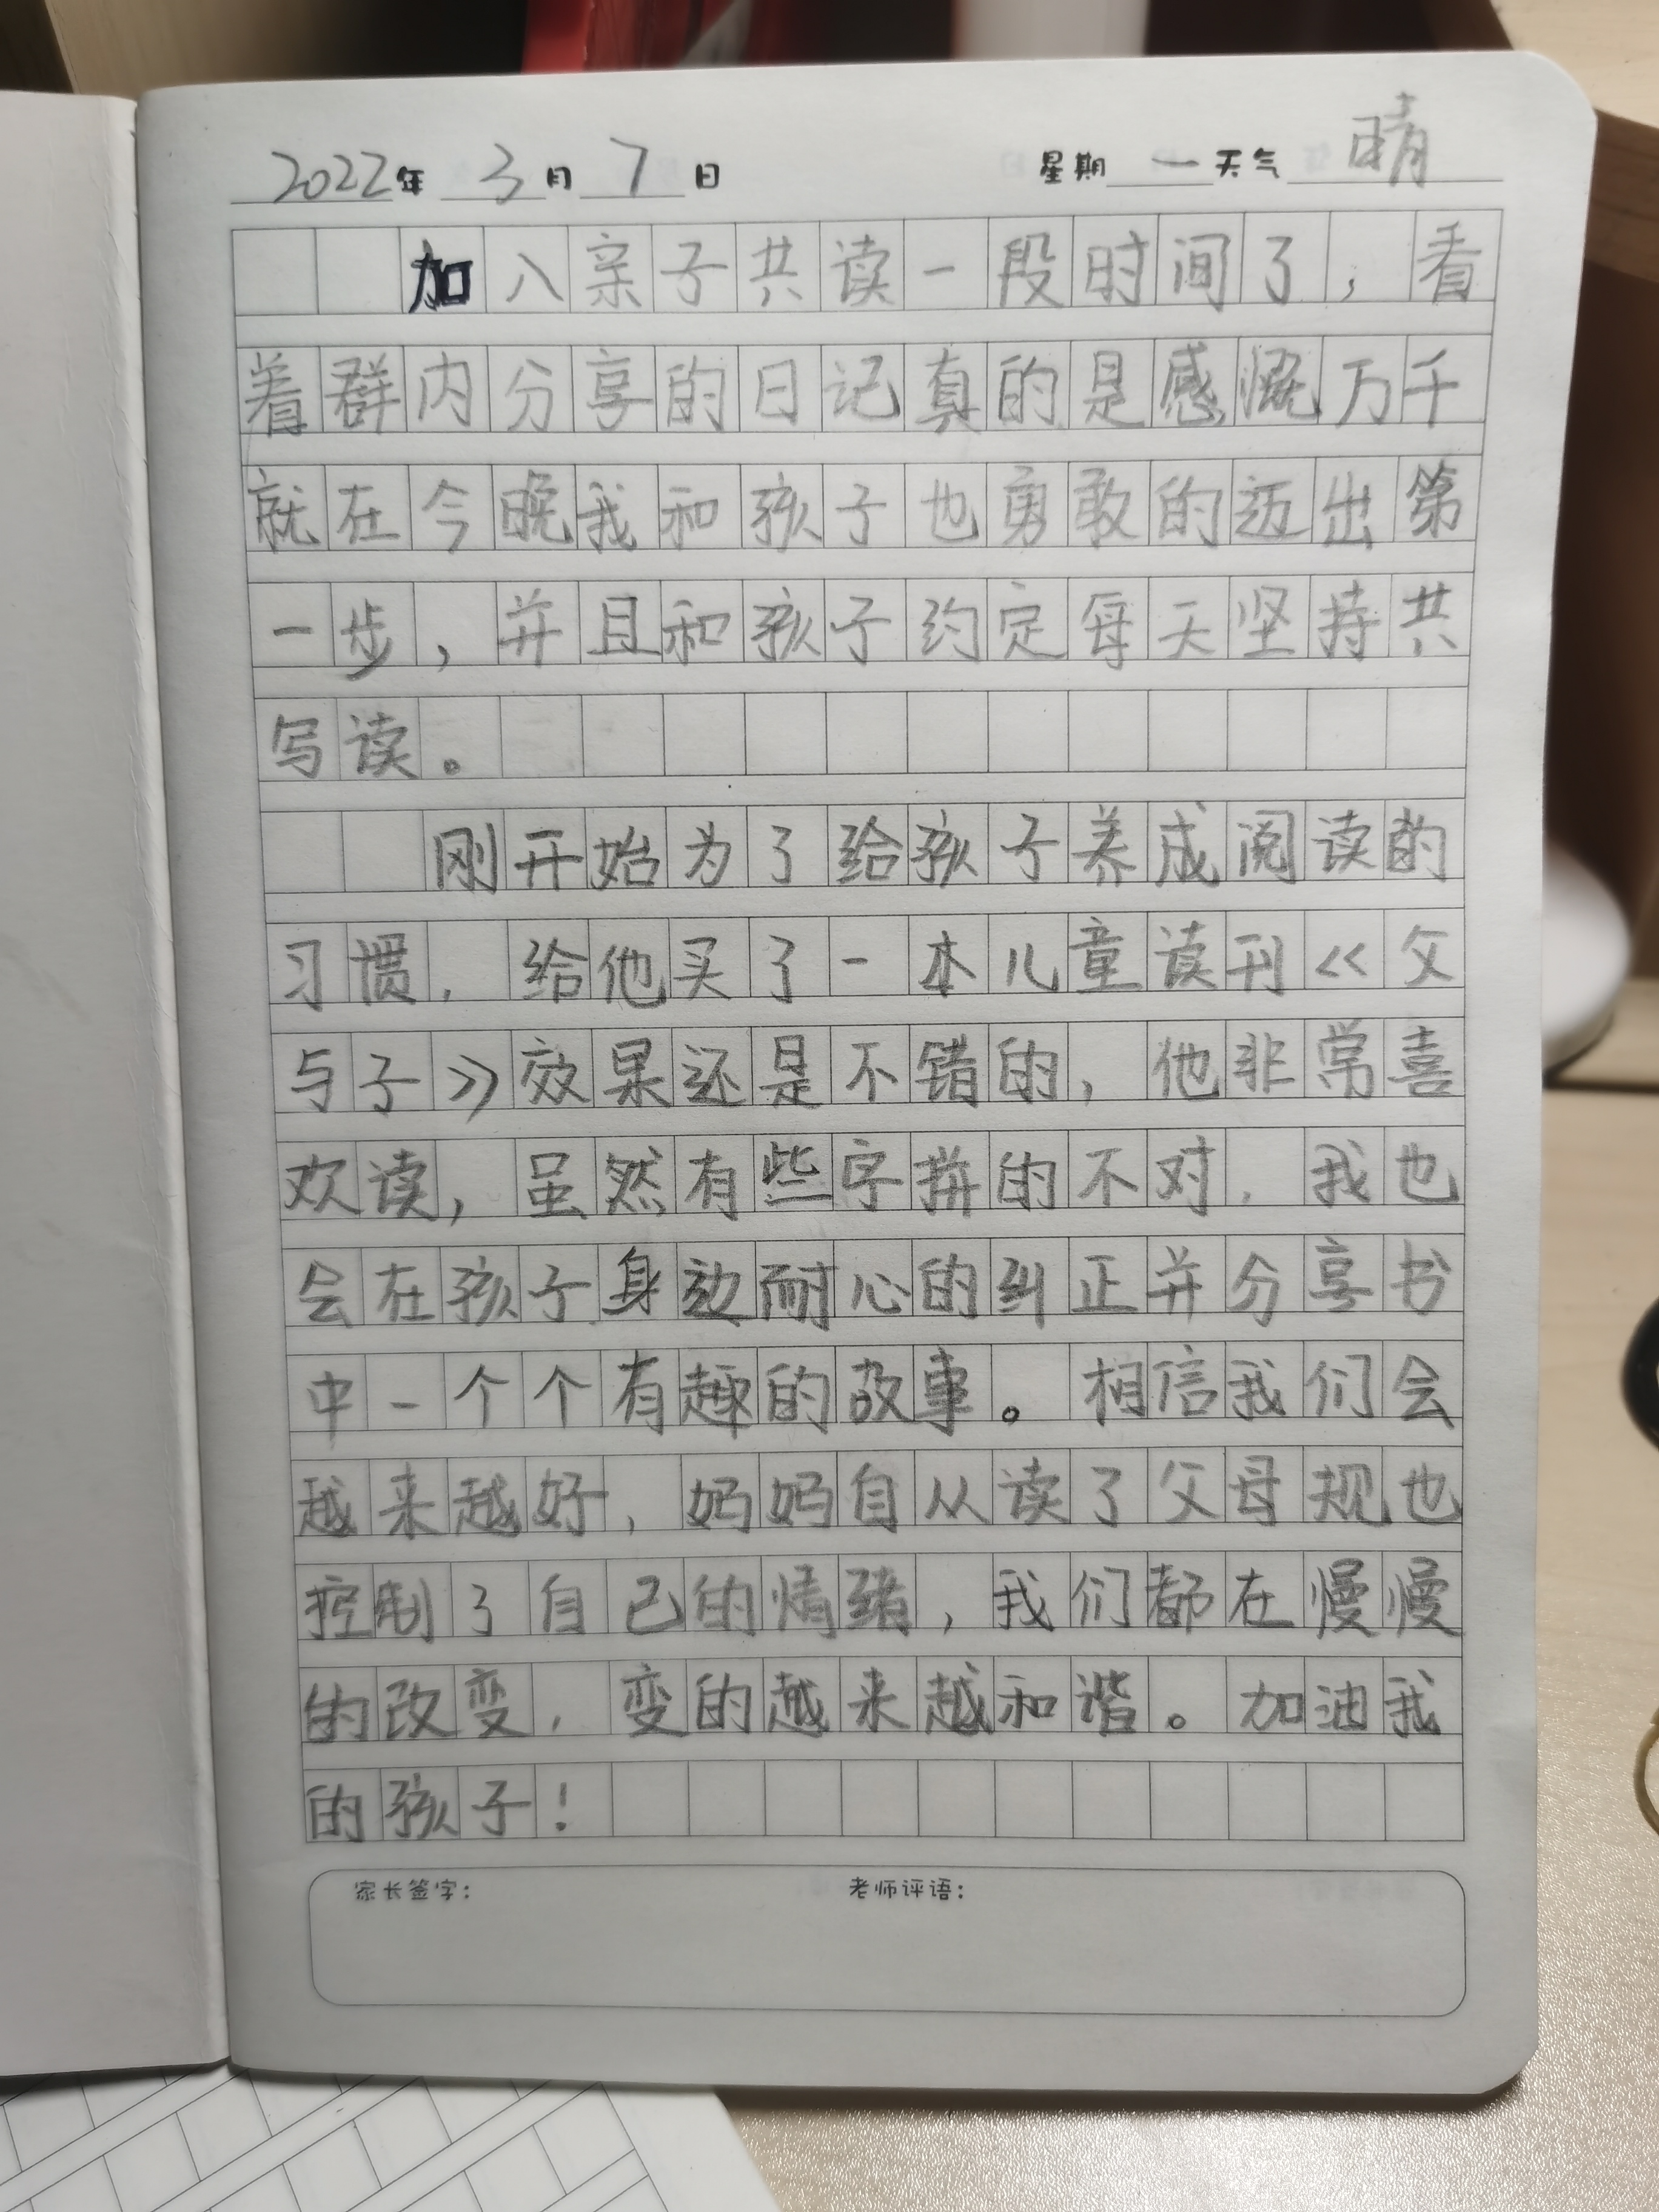 2022年 3月 7日 星期一天气 晴
加入亲子共读一段时间了，看
着群内分享的日记真的是感慨万千
就在今晚我和孩子也勇敢的迈出第
一步，并且和孩子约定每天坚持共
写读。
刚开始为了给孩子养成阅读的
习惯，给他买了一本儿童读刊《父
与子》效果还是不错的，他非常喜
欢读，虽然有些字拼的不对，我也
会在孩子身边耐心的纠正并分享书
中一个个有趣的故事。相信我们会
越来越好，妈妈自从读了父母规也
控制了自己的情绪，我们都在慢慢
的改变，变的越来越和谐。加油我
的孩子！
家长签字： 老师评语：